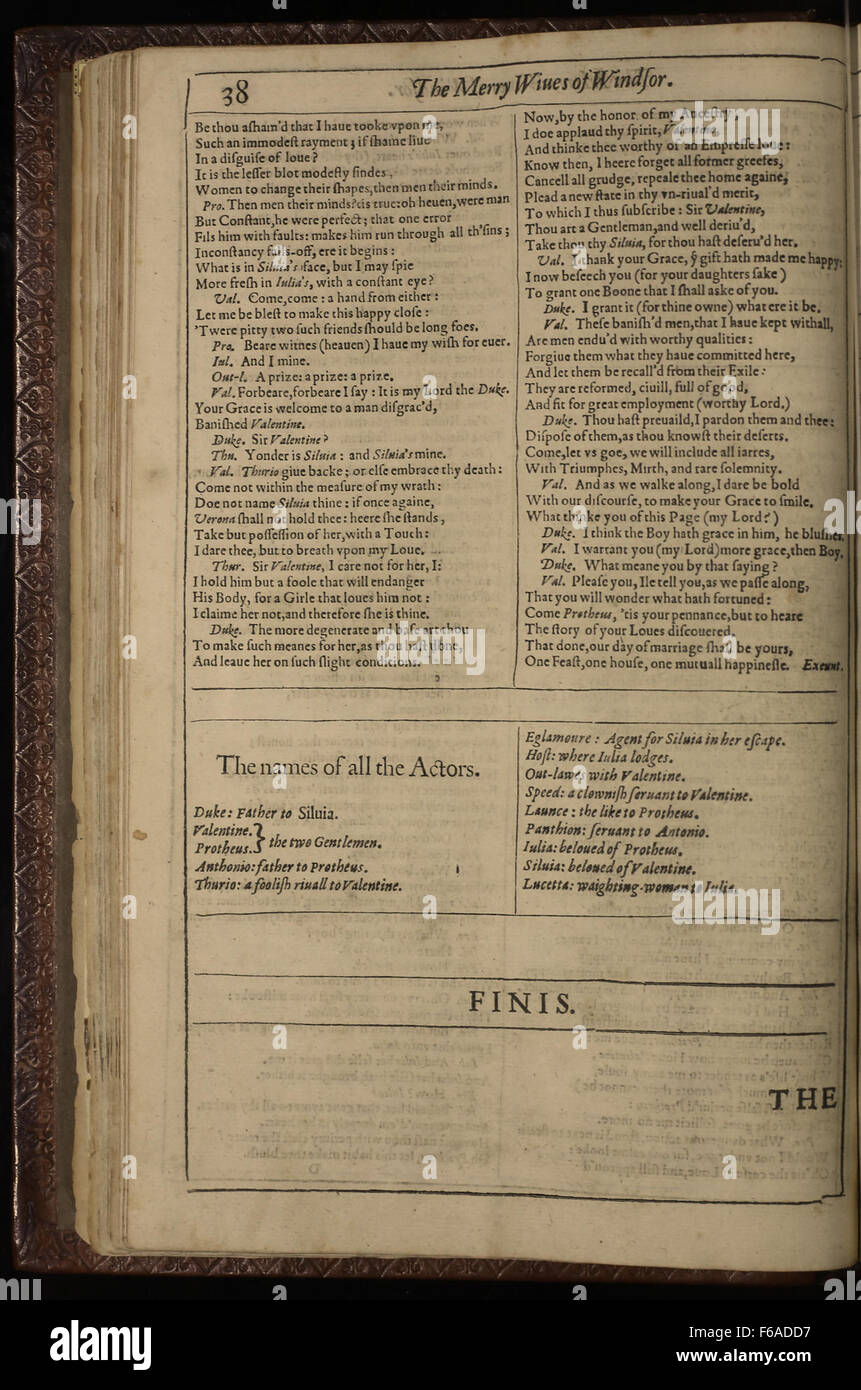 38
The Merry Wiues of Windſor.
Be thou aſham'd that I haue tooke vpon me,
Such an immodeſt rayment; if ſhame liue
In a diſguiſe of loue?
It is the leſſer blot modeſty findes,
Women to change their ſhapes,then men their minds.
Pro. Then men their minds?tis true:oh heuen,were man
But Conſtant,he were perfect; that one error
Fils him with faults: makes him run through all th'ſins;
Inconſtancy falls-off, ere it begins:
What is in Siluia's face, but I may ſpie
More freſh in Iulia's, with a conſtant eye?
Val. Come,come: a hand from either:
Let me be bleſt to make this happy cloſe:
'Twere pitty two ſuch friends ſhould be long foes.
Pro. Beare witnes (heauen) I haue my wiſh for euer.
Iul. And I mine.
Out-l. A prize: a prize: a prize.
Val. Forbeare,forbeare I ſay: It is my Lord the Duke.
Your Grace is welcome to a man diſgrac'd,
Baniſhed Valentine.
Duke. Sir Valentine?
Thu. Yonder is Siluia: and Siluia's mine.
Val. Thurio giue backe; or elſe embrace thy death:
Come not within the meaſure of my wrath:
Doe not name Siluia thine: if once againe,
Verona ſhall not hold thee: heere ſhe ſtands,
Take but poſſeſſion of her,with a Touch:
I dare thee, but to breath vpon my Loue.
Thur. Sir Valentine, I care not for her, I:
I hold him but a foole that will endanger
His Body, for a Girle that loues him not:
I claime her not,and therefore ſhe is thine.
Duke. The more degenerate and baſe art thou
To make ſuch meanes for her,as thou haſt done,
And leaue her on ſuch ſlight conditions.
Now,by the honor of my Anceſtry,
I doe applaud thy ſpirit, Valentine,
And thinke thee worthy of an Empreſſe loue:
Know then, I heere forget all former greefes,
Cancell all grudge, repeale thee home againe,
Plead a new ſtate in thy vn-riual'd merit,
To which I thus ſubſcribe: Sir Valentine,
Thou art a Gentleman,and well deriu'd,
Take thou thy Siluia, for thou haſt deſeru'd her.
Val. I thank your Grace, yͤ gift hath made me happy:
I now beſeech you (for your daughters ſake)
To grant one Boone that I ſhall aske of you.
Duke. I grant it (for thine owne) what ere it be.
Val. Theſe baniſh'd men,that I haue kept withall,
Are men endu'd with worthy qualities:
Forgiue them what they haue committed here,
And let them be recall'd from their Exile:
They are reformed, ciuill, full of good,
And fit for great employment (worthy Lord.)
Duke. Thou haſt preuaild,I pardon them and thee:
Diſpoſe of them,as thou knowſt their deſerts.
Come,let vs goe, we will include all iarres,
With Triumphes, Mirth, and rare ſolemnity.
Val. And as we walke along,I dare be bold
With our diſcourſe, to make your Grace to ſmile.
What thinke you of this Page (my Lord?)
Duke. I think the Boy hath grace in him, he bluſhes.
Val. I warrant you (my Lord)more grace,then Boy.
Duke. What meane you by that ſaying?
Val. Pleaſe you, Ile tell you,as we paſſe along,
That you will wonder what hath fortuned:
Come Protheus, 'tis your pennance,but to heare
The ſtory of your Loues diſcouered.
That done,our day of marriage ſhall be yours,
One Feaſt,one houſe, one mutuall happineſſe. Exeunt.
The names of all the Actors.
Duke: Father to Siluia.
Valentine. } the two Gentlemen.
Protheus.
Anthonio: father to Protheus.
Thurio: a fooliſh riuall to Valentine.
Eglamoure: Agent for Siluia in her eſcape.
Hoſt: where Iulia lodges.
Out-lawes with Valentine.
Speed: a clowniſh ſeruant to Valentine.
Launce: the like to Protheus.
Panthion: ſeruant to Antonio.
Iulia: beloued of Protheus.
Siluia: beloued of Valentine.
Lucetta: waighting-woman to Iulia.
FINIS.
THE
alamy
alamy
Image ID: F6ADD7
www.alamy.com